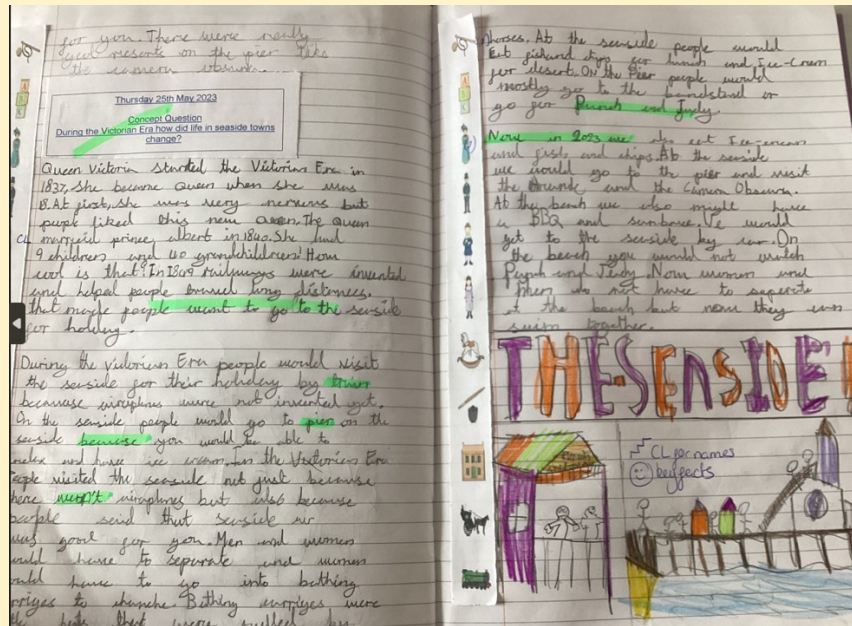 for you. There were really
good presents on the pier like
the camera obscura.
Thursday 25th May 2023
Concept Question
During the Victorian Era how did life in seaside towns
change?
Queen Victoria started the Victorian Era in
1837, she became Queen when she was
18. At first, she was very nervous but
people liked this new Queen. The Queen
CL married prince albert in 1840. She had
9 children and 40 grandchildren! How
cool is that! In 1809 railways were invented
and helped people travel long distances,
that made people want to go to the seaside
for holiday.
During the Victorian Era people would visit
the seaside for their holiday by train
because airoplanes were not invented yet.
On the seaside people would go to pier on the
seaside because you would be able to
relax and have ice cream. In the Victorian Era
people visited the seaside not just because
there wern't airoplanes but also because
people said that seaside air
was good for you. Men and women
would have to separate and women
would have to go into bathing
to Bathing were
the that were pulled by
horses. At the seaside people would
Eat fish and chips for lunch and Ice-Cream
for desert. On the Pier people would
mostly go to the bandstand or
go for Punch and Judy.
Now in 2023 we also eat Ice-cream
and fish and chips. At the seaside
we would go to the pier and visit
the and the Camera Obscura.
At the beach we also might have
a BBQ and sunbathe. We would
get to the seaside by car. On
the beach you would not watch
Punch and Judy. Now women and
men do not have to seperate
at the beach but now they can
swim together.
THE SEASIDE
CL for names
key facts